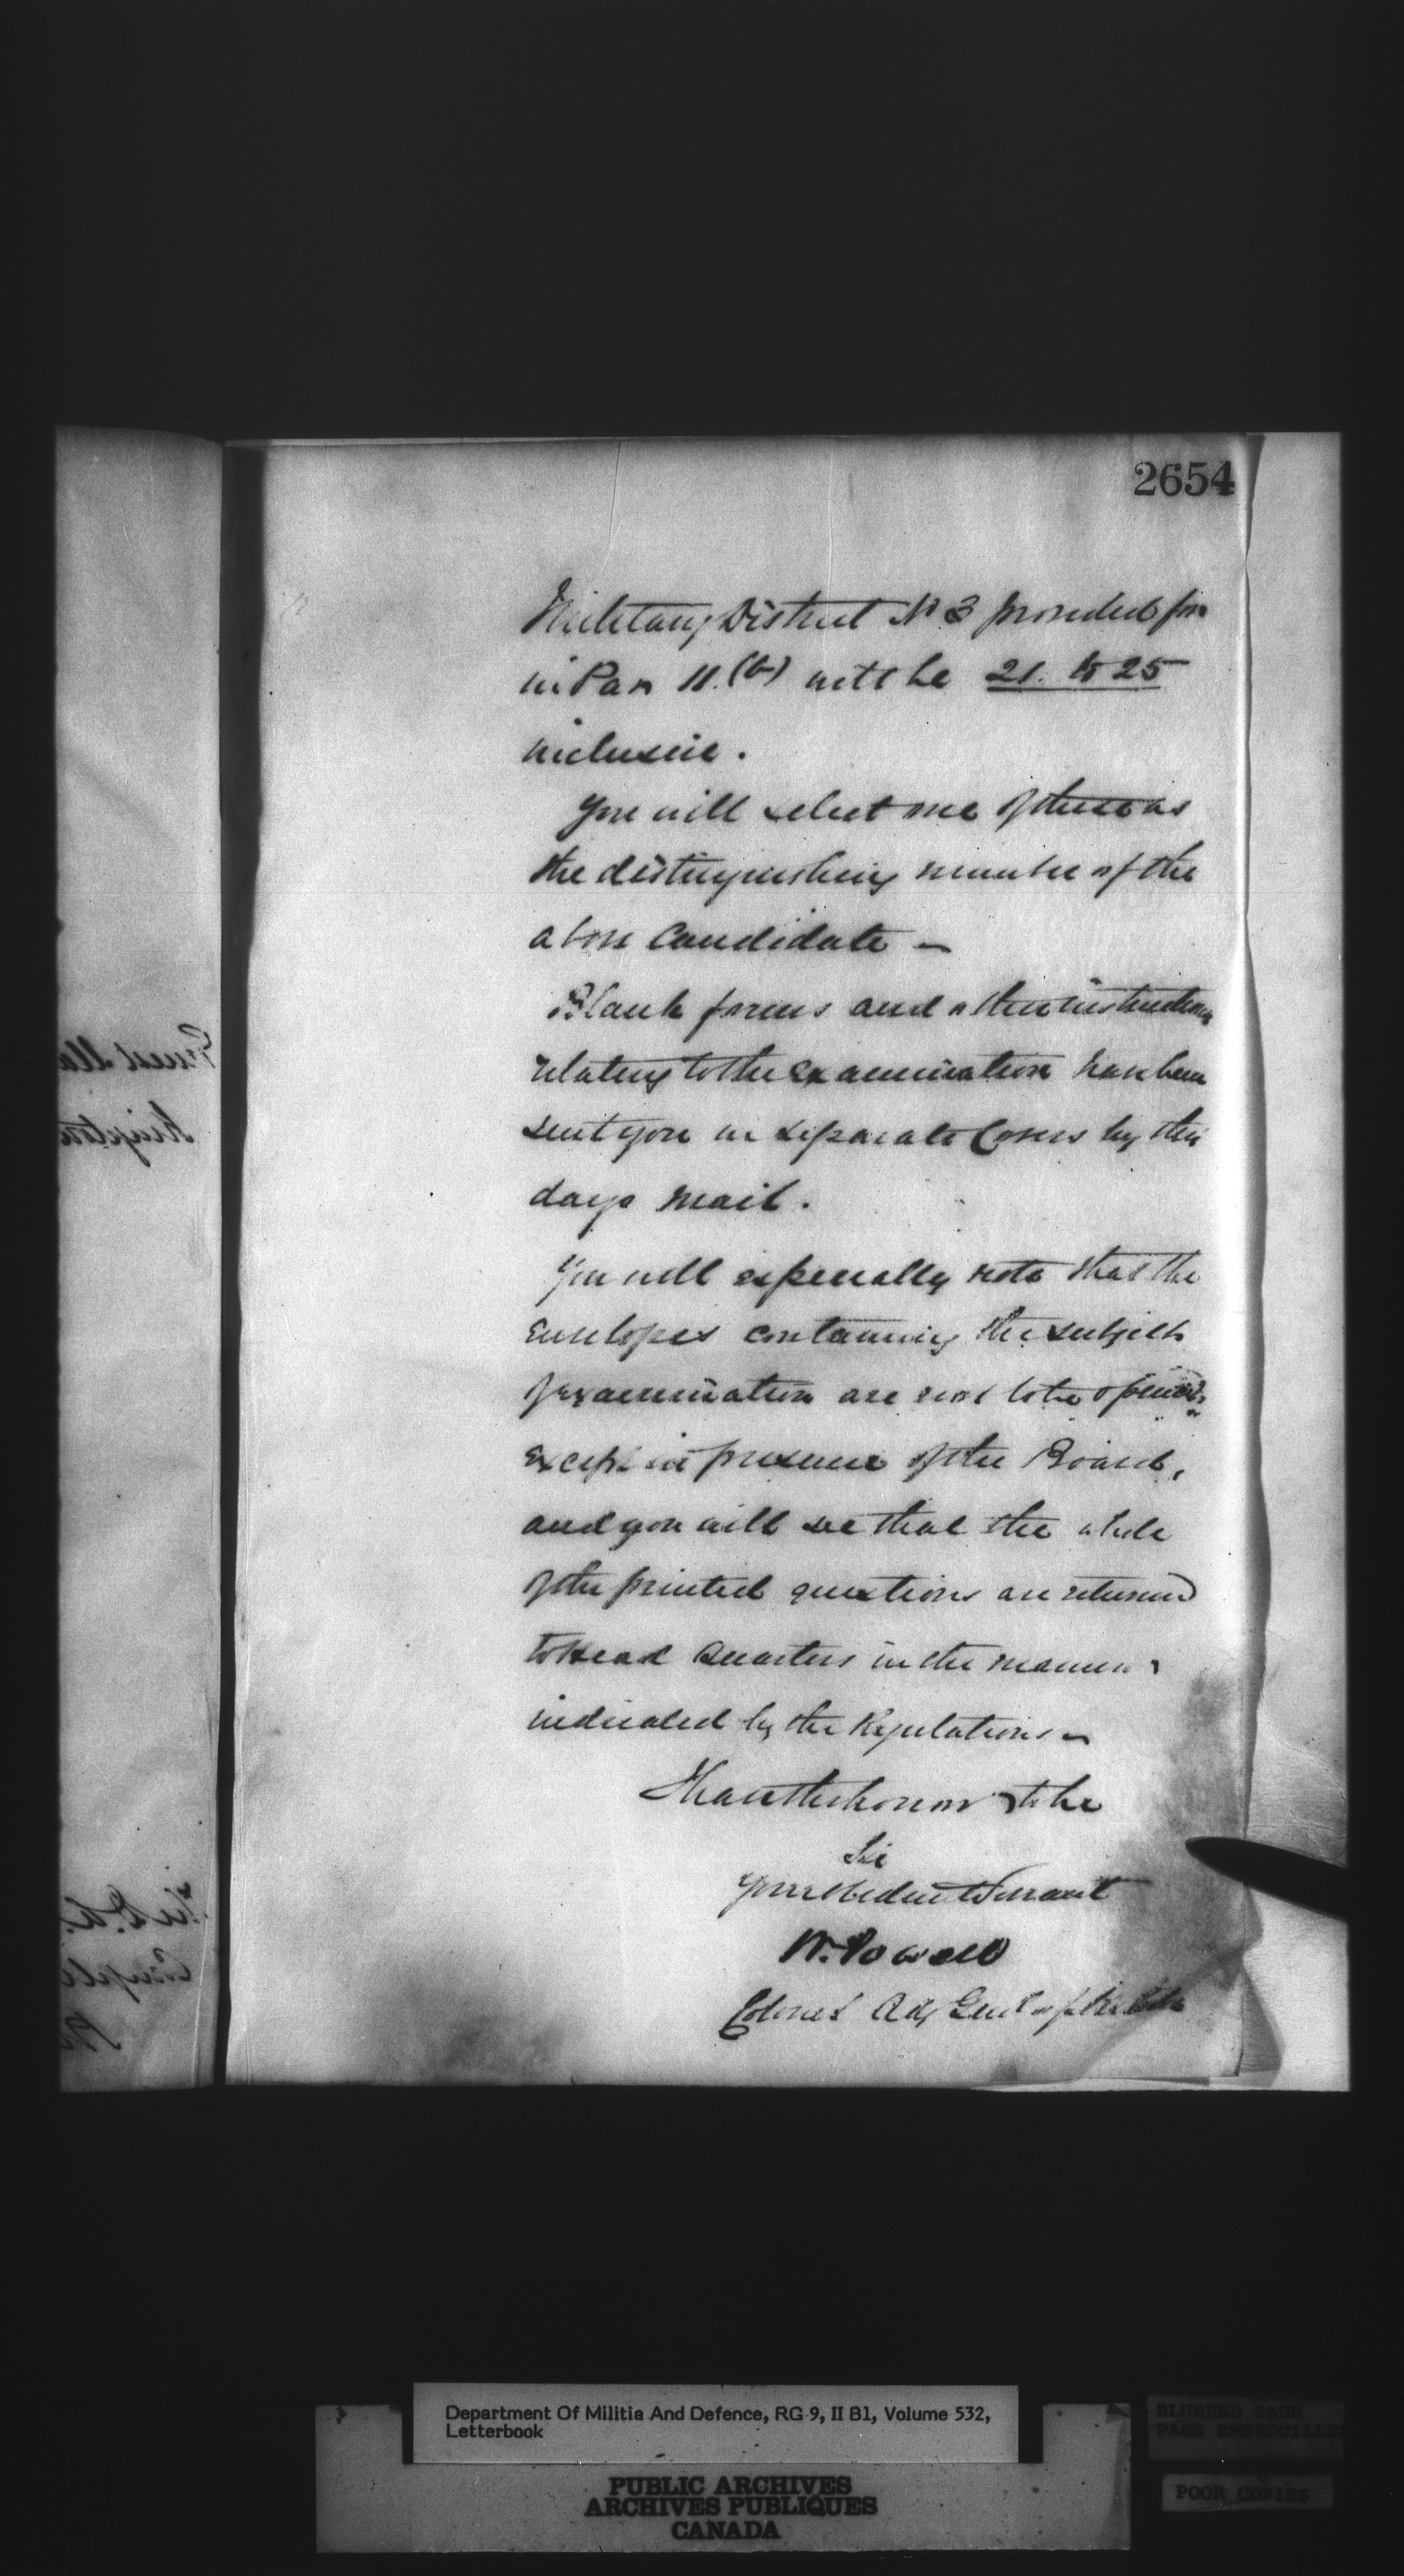 2654
Military District No 3 provided for
in Par 11.(b) will be 21. to 25
inclusive.
You will select one of these as
the distinguishing number of the
above Candidate —
Blank forms and other instructions
relating to the examination have been
sent you in separate Covers by this
days mail.
You will especially note that the
Envelopes containing the subjects
of examination are not to be opened,
except in presence of the Board,
and you will see that the whole
of the printed questions are returned
to Head Quarters in the manner
indicated by the Regulations —
I have the honor to be
Sir
Your obedient Servant
W. Powell
Colonel Adj Genl of Militia
Department Of Militia And Defence, RG 9, II B1, Volume 532,
Letterbook
PUBLIC ARCHIVES
ARCHIVES PUBLIQUES
CANADA
BLURRED PAGE
PAGE EMBROUILLE
POOR COPIES